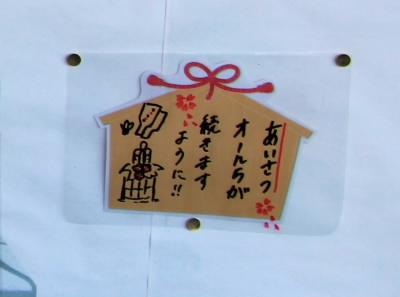 あいさつ
オール5が
続きます
ように!!